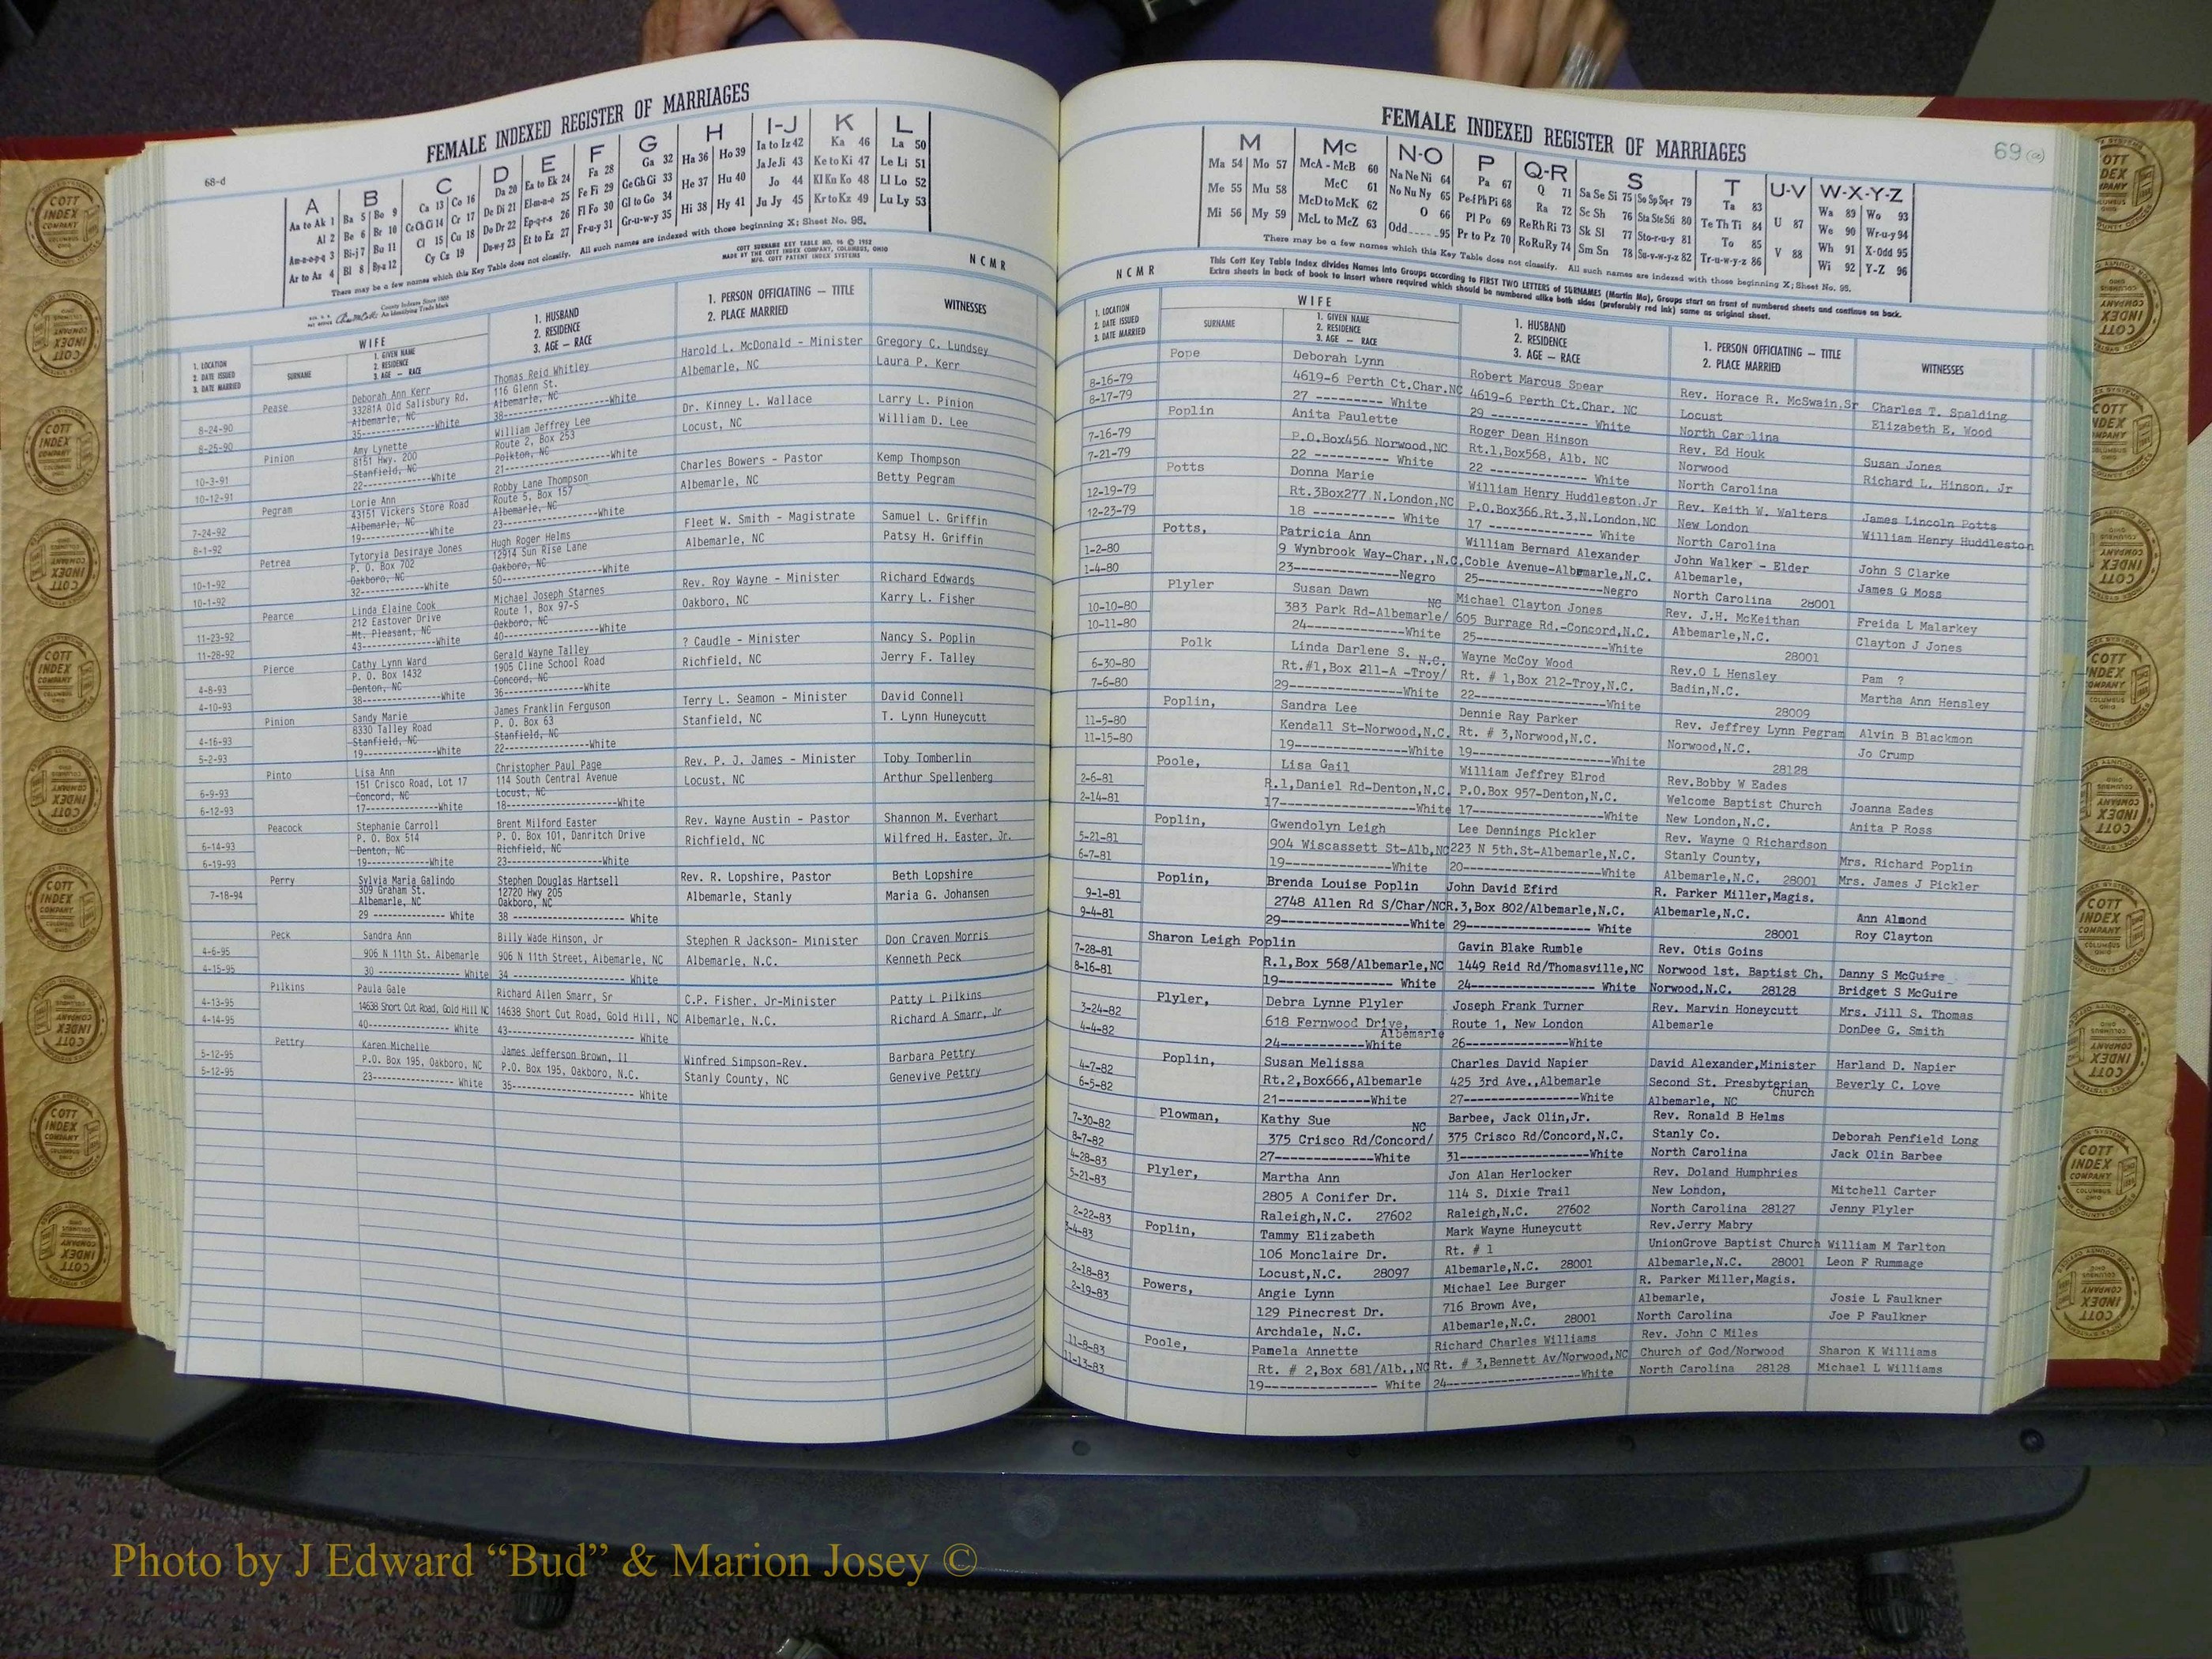 68-d
FEMALE INDEXED REGISTER OF MARRIAGES
A B C D E F G H I-J K L
Aa to Ak 1 Ba 5 Bo 9 Ca 13 Co 16 Da 20 Ea to Ek 24 Fa 28 Ga 32 Ha 36 Ho 39 Ia to Iz 42 Ka 46 La 50
Al 2 Be 6 Br 10 Ce Ch Ci 14 Cr 17 De Di 21 El-m-n-o 25 Fe Fi 29 Ge Gh Gi 33 He 37 Hu 40 Ja Je Ji 43 Ke to Ki 47 Le Li 51
Am-n-o-p-q 3 Bi-j 7 Bu 11 Cl 15 Cu 18 Do Dr 22 Ep-q-r-s 26 Fl Fo 30 Gl to Go 34 Hi 38 Hy 41 Jo 44 Kl Kn Ko 48 Ll Lo 52
Ar to Az 4 Bl 8 By-z 12 Cy Cz 19 Du-w-y 23 Et to Ez 27 Fr-u-y 31 Gr-u-w-y 35 Ju Jy 45 Kr to Kz 49 Lu Ly 53
There may be a few names which this Key Table does not classify. All such names are indexed with those beginning X; Sheet No. 95.
County Indexes Since 1888
An Identifying Trade Mark
COTT SURNAME KEY TABLE NO. 96 © 1952
MADE BY THE COTT INDEX COMPANY, COLUMBUS, OHIO
MFG. COTT PATENT INDEX SYSTEMS
N C M R
1. LOCATION
2. DATE ISSUED
3. DATE MARRIED
WIFE
SURNAME
1. GIVEN NAME
2. RESIDENCE
3. AGE — RACE
1. HUSBAND
2. RESIDENCE
3. AGE — RACE
1. PERSON OFFICIATING — TITLE
2. PLACE MARRIED
WITNESSES
Pease Deborah Ann Kerr Thomas Reid Whitley Harold L. McDonald - Minister Gregory C. Lundsey
33281A Old Salisbury Rd. 116 Glenn St. Albemarle, NC Laura P. Kerr
8-24-90 Albemarle, NC Albemarle, NC
8-25-90 35-----------White 38-----------White
Pinion Amy Lynette William Jeffrey Lee Dr. Kinney L. Wallace Larry L. Pinion
8151 Hwy. 200 Route 2, Box 253 Locust, NC William D. Lee
10-3-91 Stanfield, NC Polkton, NC
10-12-91 22-----------White 21-----------White
Pegram Lorie Ann Robby Lane Thompson Charles Bowers - Pastor Kemp Thompson
43151 Vickers Store Road Route 5, Box 157 Albemarle, NC Betty Pegram
7-24-92 Albemarle, NC Albemarle, NC
8-1-92 19-----------White 23-----------White
Petrea Tytoryia Desiraye Jones Hugh Roger Helms Fleet W. Smith - Magistrate Samuel L. Griffin
P. O. Box 702 12914 Sun Rise Lane Albemarle, NC Patsy H. Griffin
10-1-92 Oakboro, NC Oakboro, NC
10-1-92 32-----------White 50-----------White
Pearce Linda Elaine Cook Michael Joseph Starnes Rev. Roy Wayne - Minister Richard Edwards
212 Eastover Drive Route 1, Box 97-S Oakboro, NC Karry L. Fisher
11-23-92 Mt. Pleasant, NC Oakboro, NC
11-28-92 43-----------White 40-----------White
Pierce Cathy Lynn Ward Gerald Wayne Talley ? Caudle - Minister Nancy S. Poplin
P. O. Box 1432 1905 Cline School Road Richfield, NC Jerry F. Talley
4-8-93 Denton, NC Concord, NC
4-10-93 38-----------White 36-----------White
Pinion Sandy Marie James Franklin Ferguson Terry L. Seamon - Minister David Connell
8330 Talley Road P. O. Box 63 Stanfield, NC T. Lynn Huneycutt
4-16-93 Stanfield, NC Stanfield, NC
5-2-93 19-----------White 22-----------White
Pinto Lisa Ann Christopher Paul Page Rev. P. J. James - Minister Toby Tomberlin
151 Crisco Road, Lot 17 114 South Central Avenue Locust, NC Arthur Spellenberg
6-9-93 Concord, NC Locust, NC
6-12-93 17-----------White 18-----------White
Peacock Stephanie Carroll Brent Milford Easter Rev. Wayne Austin - Pastor Shannon M. Everhart
P. O. Box 514 P. O. Box 101, Danritch Drive Richfield, NC Wilfred H. Easter, Jr.
6-14-93 Denton, NC Richfield, NC
6-19-93 19-----------White 23-----------White
Perry Sylvia Maria Galindo Stephen Douglas Hartsell Rev. R. Lopshire, Pastor Beth Lopshire
7-18-94 309 Graham St. 12720 Hwy 205 Albemarle, Stanly Maria G. Johansen
Albemarle, NC Oakboro, NC
29 ----------- White 38 ----------- White
Peck Sandra Ann Billy Wade Hinson, Jr Stephen R Jackson- Minister Don Craven Morris
4-6-95 906 N 11th St. Albemarle 906 N 11th Street, Albemarle, NC Albemarle, N.C. Kenneth Peck
4-15-95 30 ----------- White 34 ----------- White
Pilkins Paula Gale Richard Allen Smarr, Sr C.P. Fisher, Jr-Minister Patty L Pilkins
4-13-95 14638 Short Cut Road, Gold Hill NC 14638 Short Cut Road, Gold Hill, NC Albemarle, N.C. Richard A Smarr, Jr
4-14-95 40----------- White 43----------- White
Pettry Karen Michelle James Jefferson Brown, II Winfred Simpson-Rev. Barbara Pettry
5-12-95 P.O. Box 195, Oakboro, NC P.O. Box 195, Oakboro, N.C. Stanly County, NC Genevive Pettry
5-12-95 23----------- White 35----------- White
69 (a)
FEMALE INDEXED REGISTER OF MARRIAGES
M Mc N-O P Q-R S T U-V W-X-Y-Z
Ma 54 Mo 57 McA - McB 60 Na Ne Ni 64 Pa 67 Q 71 Sa Se Si 75 So Sp Sq-r 79 Ta 83 U 87 Wa 89 Wo 93
Me 55 Mu 58 McC 61 No Nu Ny 65 Pe-f Ph Pi 68 Ra 72 Sc Sh 76 Sta Ste Sti 80 Te Th Ti 84 V 88 We 90 Wr-u-y 94
Mi 56 My 59 McD to McK 62 O 66 Pl Po 69 Re Rh Ri 73 Sk Sl 77 Sto-r-u-y 81 To 85 Wh 91 X-Odd 95
McL to McZ 63 Odd 95 Pr to Pz 70 Ro Ru Ry 74 Sm Sn 78 Su-v-w-y-z 82 Tr-u-w-y-z 86 Wi 92 Y-Z 96
There may be a few names which this Key Table does not classify. All such names are indexed with those beginning X; Sheet No. 95.
This Cott Key Table Index divides Names into Groups according to FIRST TWO LETTERS of SURNAMES (Martin Ma), Groups start on front of numbered sheets and continue on back.
Extra sheets in back of book to insert where required which should be numbered alike both sides (preferably red ink) same as original sheet.
N C M R
1. LOCATION
2. DATE ISSUED
3. DATE MARRIED
WIFE
SURNAME
1. GIVEN NAME
2. RESIDENCE
3. AGE — RACE
1. HUSBAND
2. RESIDENCE
3. AGE — RACE
1. PERSON OFFICIATING — TITLE
2. PLACE MARRIED
WITNESSES
Pope Deborah Lynn Robert Marcus Spear Rev. Horace R. McSwain,Sr Charles T. Spalding
8-16-79 4619-6 Perth Ct.Char.NC 4619-6 Perth Ct.Char. NC Locust Elizabeth E. Wood
8-17-79 27 --------- White 29 --------- White North Carolina
Poplin Anita Paulette Roger Dean Hinson Rev. Ed Houk Susan Jones
7-16-79 P.O.Box456 Norwood,NC Rt.1,Box568, Alb. NC Norwood Richard L. Hinson, Jr
7-21-79 22 --------- White 22 --------- White North Carolina
Potts Donna Marie William Henry Huddleston.Jr Rev. Keith W. Walters James Lincoln Potts
12-19-79 Rt.3Box277 N.London,NC P.O.Box366.Rt.3,N.London,NC New London William Henry Huddleston
12-23-79 18 --------- White 17 --------- White North Carolina
Potts, Patricia Ann William Bernard Alexander John Walker - Elder John S Clarke
1-2-80 9 Wynbrook Way-Char.,N.C. Coble Avenue-Albemarle,N.C. Albemarle, James G Moss
1-4-80 23-----------Negro 25-----------Negro North Carolina 28001
Plyler Susan Dawn Michael Clayton Jones Rev. J.H. McKeithan Freida L Malarkey
10-10-80 383 Park Rd-Albemarle/ NC 605 Burrage Rd.-Concord,N.C. Albemarle,N.C. Clayton J Jones
10-11-80 24-----------White 25-----------White 28001
Polk Linda Darlene S. Wayne McCoy Wood Rev.O L Hensley Pam ?
6-30-80 Rt.#1,Box 211-A -Troy/ N.C. Rt. # 1,Box 212-Troy,N.C. Badin,N.C. Martha Ann Hensley
7-6-80 29-----------White 22-----------White 28009
Poplin, Sandra Lee Dennie Ray Parker Rev. Jeffrey Lynn Pegram Alvin B Blackmon
11-5-80 Kendall St-Norwood,N.C. Rt. # 3,Norwood,N.C. Norwood,N.C. Jo Crump
11-15-80 19-----------White 19-----------White 28128
Poole, Lisa Gail William Jeffrey Elrod Rev.Bobby W Eades Joanna Eades
2-6-81 R.1,Daniel Rd-Denton,N.C. P.O.Box 957-Denton,N.C. Welcome Baptist Church Anita P Ross
2-14-81 17-----------White 17-----------White New London,N.C.
Poplin, Gwendolyn Leigh Lee Dennings Pickler Rev. Wayne Q Richardson Mrs. Richard Poplin
5-21-81 904 Wiscassett St-Alb,NC 223 N 5th.St-Albemarle,N.C. Stanly County, Mrs. James J Pickler
6-7-81 19-----------White 20-----------White Albemarle,N.C. 28001
Poplin, Brenda Louise Poplin John David Efird R. Parker Miller,Magis. Ann Almond
9-1-81 2748 Allen Rd S/Char/NC R.3,Box 802/Albemarle,N.C. Albemarle,N.C. Roy Clayton
9-4-81 29-----------White 29----------- White 28001
Sharon Leigh Poplin Gavin Blake Rumble Rev. Otis Goins Danny S McGuire
7-28-81 R.1,Box 568/Albemarle,NC 1449 Reid Rd/Thomasville,NC Norwood 1st. Baptist Ch. Bridget S McGuire
8-16-81 19----------- White 24----------- White Norwood,N.C. 28128
Plyler, Debra Lynne Plyler Joseph Frank Turner Rev. Marvin Honeycutt Mrs. Jill S. Thomas
3-24-82 618 Fernwood Drive, Albemarle Route 1, New London Albemarle DonDee G. Smith
4-4-82 24-----------White 26-----------White
Poplin, Susan Melissa Charles David Napier David Alexander,Minister Harland D. Napier
4-7-82 Rt.2,Box666,Albemarle 425 3rd Ave.,Albemarle Second St. Presbyterian Church Beverly C. Love
6-5-82 21-----------White 27-----------White Albemarle, NC
Plowman, Kathy Sue Barbee, Jack Olin,Jr. Rev. Ronald B Helms Deborah Penfield Long
7-30-82 375 Crisco Rd/Concord/ NC 375 Crisco Rd/Concord,N.C. Stanly Co. Jack Olin Barbee
8-7-82 27-----------White 31-----------White North Carolina
4-28-83 Plyler, Martha Ann Jon Alan Herlocker Rev. Doland Humphries Mitchell Carter
5-21-83 2805 A Conifer Dr. 114 S. Dixie Trail New London, Jenny Plyler
Raleigh,N.C. 27602 Raleigh,N.C. 27602 North Carolina 28127
2-22-83 Poplin, Tammy Elizabeth Mark Wayne Huneycutt Rev.Jerry Mabry William M Tarlton
3-4-83 106 Monclaire Dr. Rt. # 1 UnionGrove Baptist Church Leon F Rummage
Locust,N.C. 28097 Albemarle,N.C. 28001 Albemarle,N.C. 28001
2-18-83 Powers, Angie Lynn Michael Lee Burger R. Parker Miller,Magis. Josie L Faulkner
2-19-83 129 Pinecrest Dr. 716 Brown Ave, Albemarle, Joe P Faulkner
Archdale, N.C. Albemarle,N.C. 28001 North Carolina
11-8-83 Poole, Pamela Annette Richard Charles Williams Rev. John C Miles Sharon K Williams
11-13-83 Rt. # 2,Box 681/Alb.,NC Rt. # 3,Bennett Av/Norwood,NC Church of God/Norwood Michael L Williams
19----------- White 24-----------White North Carolina 28128
COTT INDEX COMPANY COLUMBUS OHIO
Photo by J Edward “Bud” & Marion Josey ©